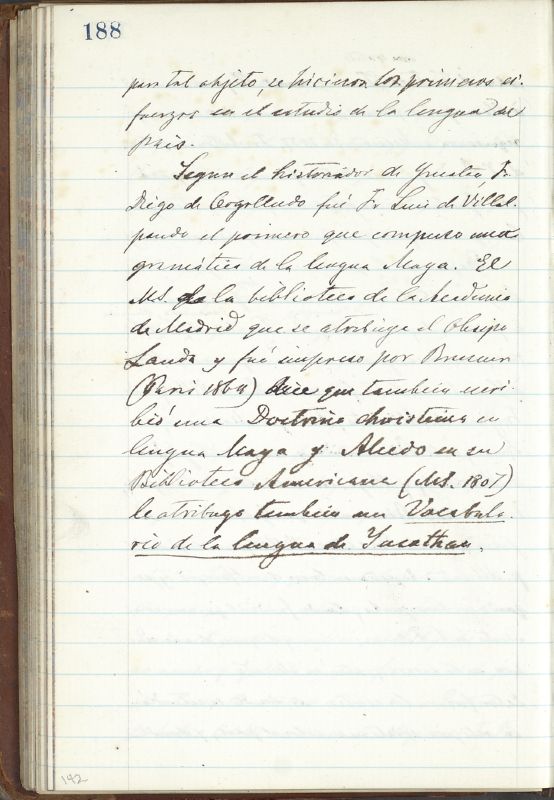 188
para tal objeto, se hicieron los primeros es-
fuerzos en el estudio de la lengua del
pais.
Segun el historiador de Yucatan Fr.
Diego de Cogolludo fué Fr Luis de Villal-
pando el primero que compuso una
gramática de la lengua Maya. El
MS. de la biblioteca de la Academia
de Madrid que se atribuye al Obispo
Landa y fué impreso por Brasseur
(Paris 1864) dice que tambien escri-
bió una Doctrina christiana en
lengua Maya y Alcedo en su
Biblioteca Americana (MS. 1807)
le atribuye tambien un Vocabula-
rio de la lengua de Yucathan.
142